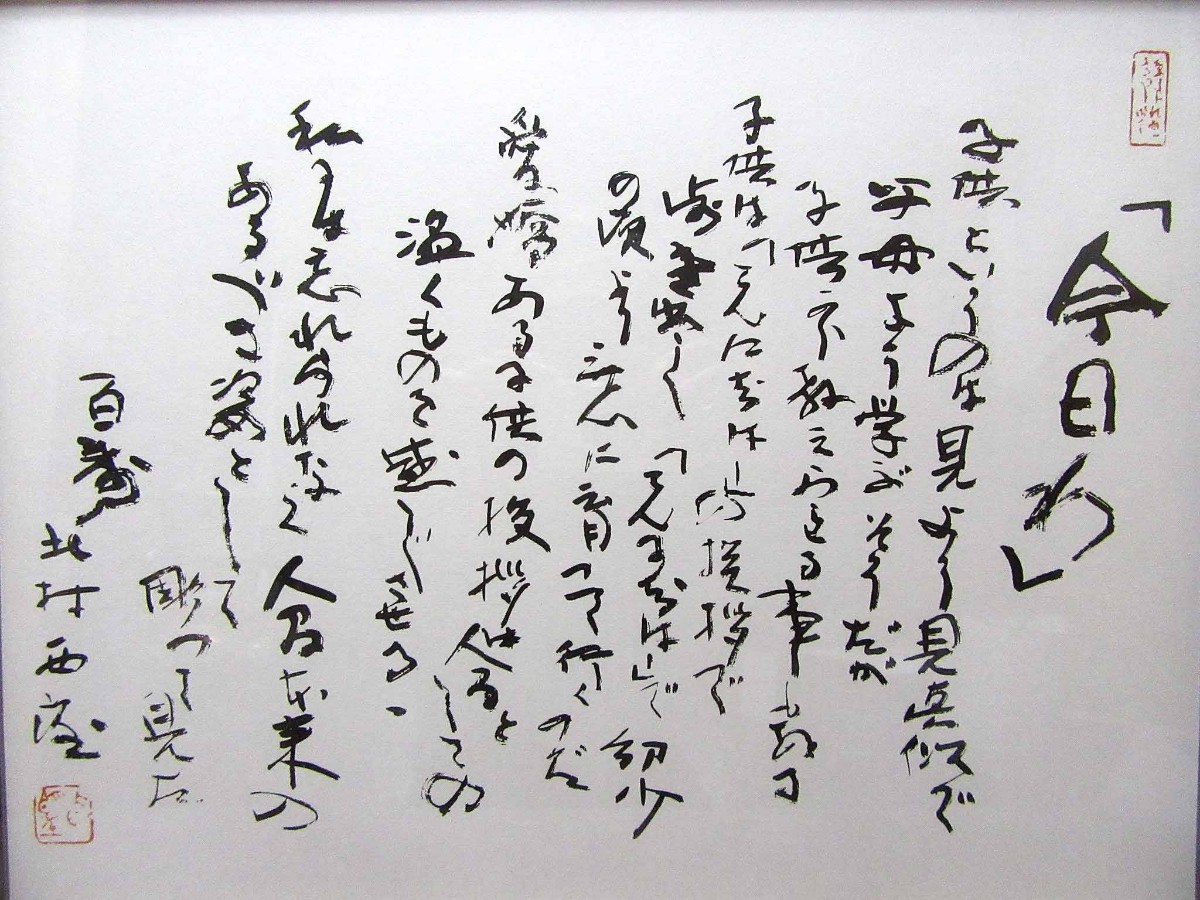 「今日わ」
子供というのは見よう見真似で
父母より学ぶそうだが
子供に教えられる事もある
子供は「こんにちは」の挨拶で
歩き出し「こんばは」で幼少
の頃より心に育って行くのだ
愛嬌ある子供の挨拶は人間としての
温くものを感じさせる、
私には忘れられなく人間本来の
あるべき姿として
彫って見た
百寿 北村西望